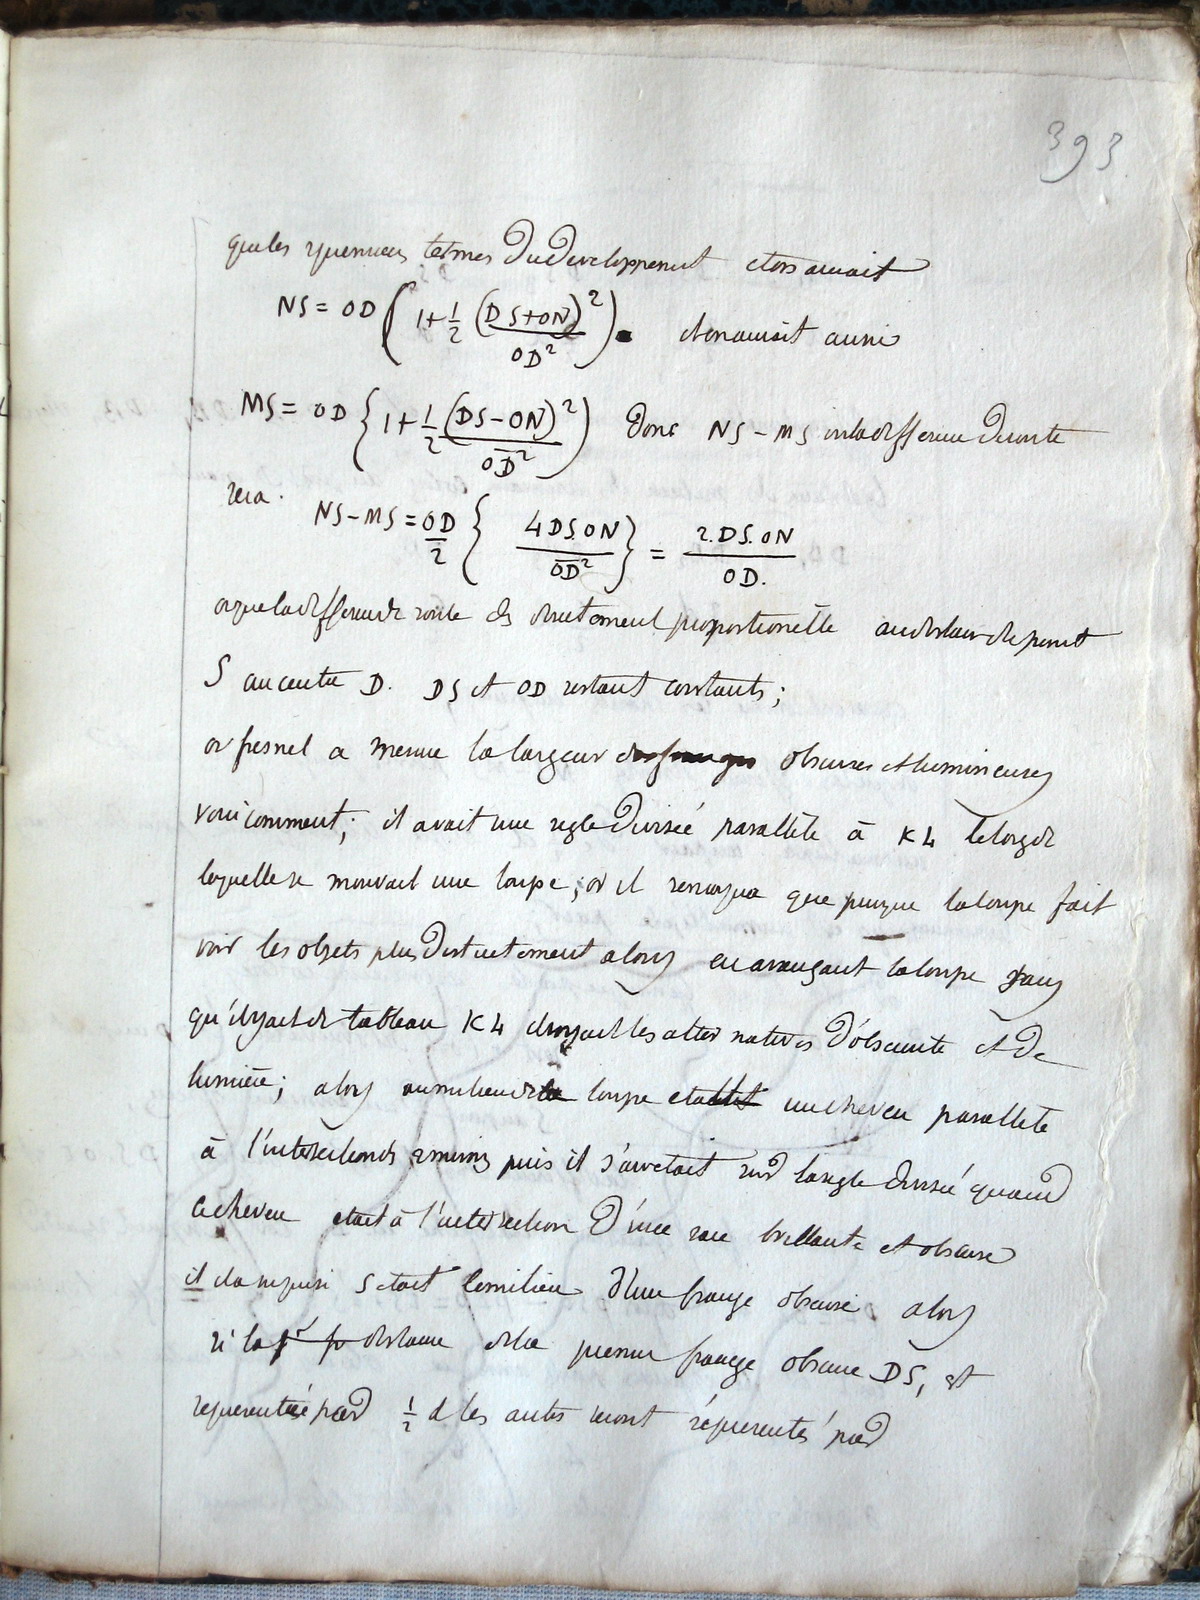 393
que les premiers termes du developpement et on aurait
NS = OD ( 1 + 1/2 (DS+ON)² / OD² ) . et on aurait aussi
MS = OD { 1 + 1/2 (DS-ON)² / OD² ) donc NS - MS ou la difference de route
sera.
NS-MS = OD/2 { 4DS.ON / OD² } = 2.DS.ON / OD.
que la difference de route est directement proportionelle a la distance du point
S au centre D. DS et OD restant constants;
or fresnel a mesuré la largeur des franges obscures et lumineuses
voici comment; il avait une regle divisée parallèle à KL le long de
laquelle se mouvait une loupe; or il remarqua que puisque la loupe fait
voir les objets plus distinctement alors en avançant la loupe sans
qu'il y ait de tableau KL il voyait les alternatives d'obscurité et de
lumière; alors au milieu de la loupe etait un cheveu parallèle
à l'intersection des 2 miroirs puis il s'arretait sur la regle divisé quand
ce cheveu etait à l'intersection d'une raie brillante et obscure
il S etait le milieu d'une frange obscure alors
si la distance de la premiere frange obscure DS, est
representée par 1/2 d les autres seront représentés par